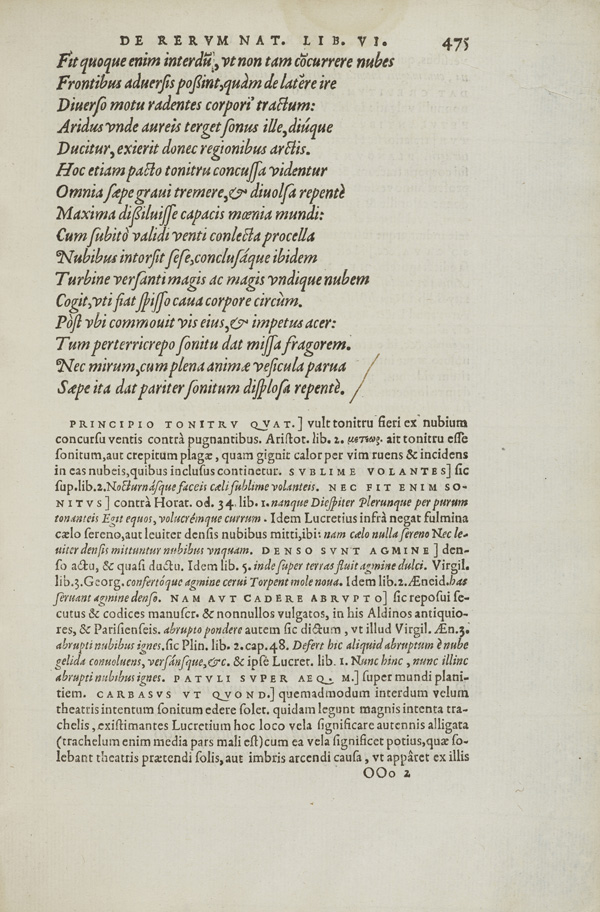 DE RERVM NAT. LIB. VI. 475
Fit quoque enim interdū, vt non tam cōcurrere nubes
Frontibus aduersis poßint, quàm de latere ire
Diuerso motu radentes corpori' tractum:
Aridus vnde aureis terget sonus ille, diúque
Ducitur, exierit donec regionibus arctis.
Hoc etiam pacto tonitru concussa videntur
Omnia sæpe graui tremere, & diuolsa repentè
Maxima dißiluisse capacis mœnia mundi:
Cum subitò validi venti conlecta procella
Nubibus intorsit sese, conclusáque ibidem
Turbine versanti magis ac magis vndique nubem
Cogit, vti fiat spisso caua corpore circùm.
Pòst vbi commouit vis eius, & impetus acer:
Tum perterricrepo sonitu dat missa fragorem.
Nec mirum, cum plena animæ vesicula parua
Sæpe ita dat pariter sonitum displosa repentè.
PRINCIPIO TONITRV QVAT.] vult tonitru fieri ex nubium
concursu ventis contrà pugnantibus. Aristot. lib. 2. ait tonitru esse
sonitum, aut crepitum plagæ, quam gignit calor per vim ruens & incidens
in eas nubeis, quibus inclusus continetur. SVBLIME VOLANTES] sic
sup. lib. 2. Nocturnásque faceis cæli sublime volanteis. NEC FIT ENIM SO-
NITVS] contrà Horat. od. 34. lib. 1. nanque Diespiter Plerunque per purum
tonanteis Egit equos, volucrémque currum. Idem Lucretius infrà negat fulmina
cælo sereno, aut leuiter densis nubibus mitti, ibi: nam cælo nulla sereno Nec le-
uiter densis mittuntur nubibus vnquam. DENSO SVNT AGMINE] den-
so actu, & quasi ductu. Idem lib. 5. inde super terras fluit agmine dulci. Virgil.
lib. 3. Georg. confertóque agmine cerui Torpent mole noua. Idem lib. 2. Æneid. has
seruant agmine denso. NAM AVT CADERE ABRVPTO] sic reposui se-
cutus & codices manuscr. & nonnullos vulgatos, in his Aldinos antiquio-
res, & Parisienseis. abrupto pondere autem sic dictum, vt illud Virgil. Æn. 3.
abrupti nubibus ignes. sic Plin. lib. 2. cap. 48. Defert hic aliquid abruptum è nube
gelida conuoluens, versánsque, &c. & ipsè Lucret. lib. 1. Nunc hinc, nunc illinc
abrupti nubibus ignes. PATVLI SVPER AEQ. M.] super mundi plani-
tiem. CARBASVS VT QVOND.] quemadmodum interdum velum
theatris intentum sonitum edere solet. quidam legunt magnis intenta tra-
chelis, existimantes Lucretium hoc loco vela significare autennis alligata
(trachelum enim media pars mali est) cum ea vela significet potius, quæ so-
lebant theatris prætendi solis, aut imbris arcendi causa, vt appâret ex illis
OOo 2